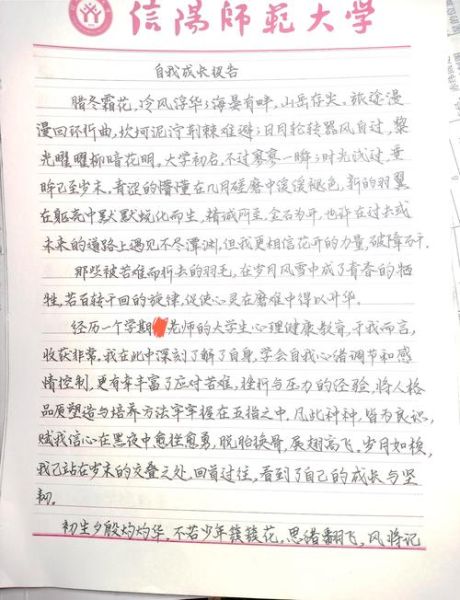 信陽師範大学
自我成长报告
腊冬霜花，冷风浮华；海晏有畔，山岳存尖。旅途漫
漫回环折曲，坎坷泥泞荆棘难避；日月轮转器风自过，黎
光曜曜柳暗花明。大学初启，不过寥寥一瞬；时光试过，垂
眸已至岁末。青涩的懵懂在几月磋磨中缓缓褪色，新的羽翼
在躯壳中默默蜕化而生。精诚所至，金石为开，也许在过去或
未来的道路上遇见不尽潭渊，但我更相信花开的力量，破障万千。
那些被苦难而折去的羽毛，在岁月风雪中成了青春的牺
牲，若百转千回的旋律，促使心灵在磨难中得以升华。
经历一个学期老师的大学生心理健康教育，于我而言，
收获非常。我在此中深刻了解了自身，学会自我心绪调节和感
情控制，更有幸丰富了应对苦难，挫折与压力的经验，将人格
品质塑造与培养方法牢牢握在五指之中。凡此种种，皆为良识，
赋我信心在黑夜中愈挫愈勇，脱胎换骨，展翅高飞。岁月如梭，
我已站在岁末的交叠之处，回首过往，看到了自己的成长与坚
韧。
初生夕殷灼灼华，不若少年簇簇花，思绪翻飞，风将记